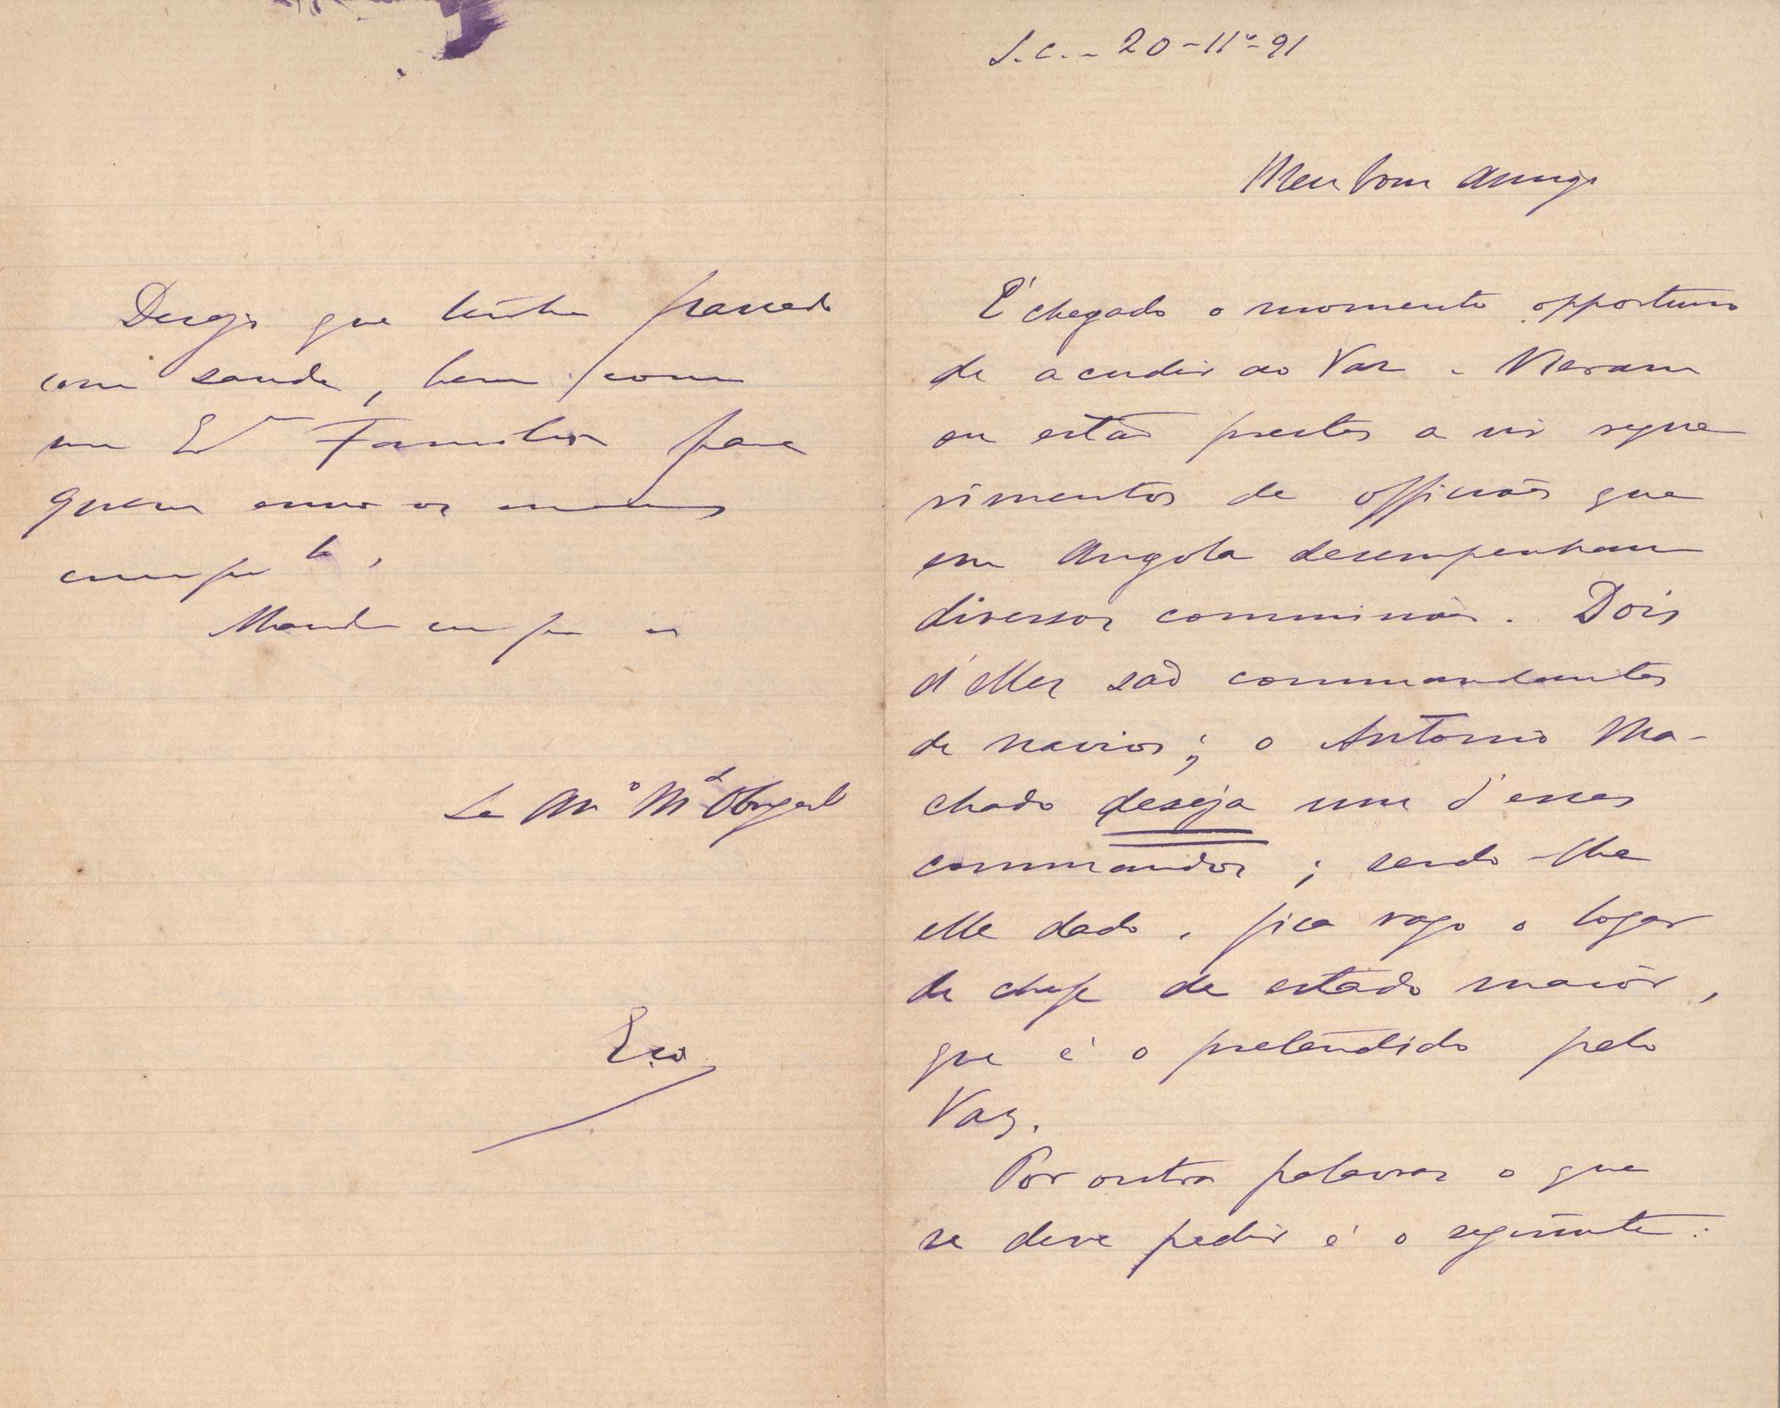 S.C. - 20-11º-91
Meu bom amigo
É chegado o momento opportuno
de acudir ao Vaz. Vieram
ou estão prestes a vir reque
rimentos de officiaes que
em Angola desempenham
diversas commissões. Dois
d'elles são commandantes
de navios; o Antonio Ma-
chado deseja um d'esses
commandos; sendo-lhe
elle dado, fica vago o logar
de chefe de estado maior,
que é o pretendido pelo
Vaz.
Por outras palavras o que
se deve pedir é o seguinte:
Desejo que tenha passado
com saude, bem como
Familia para
quem envio os meus
cumptos,
Mande em que
Mº Mº Obrigado